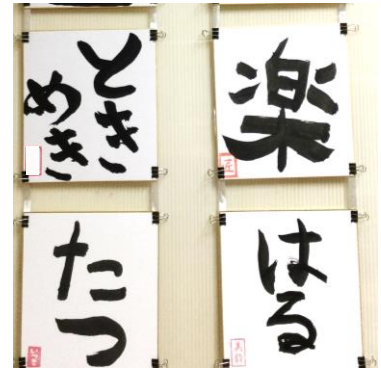 とき
めき
楽
たつ
はる